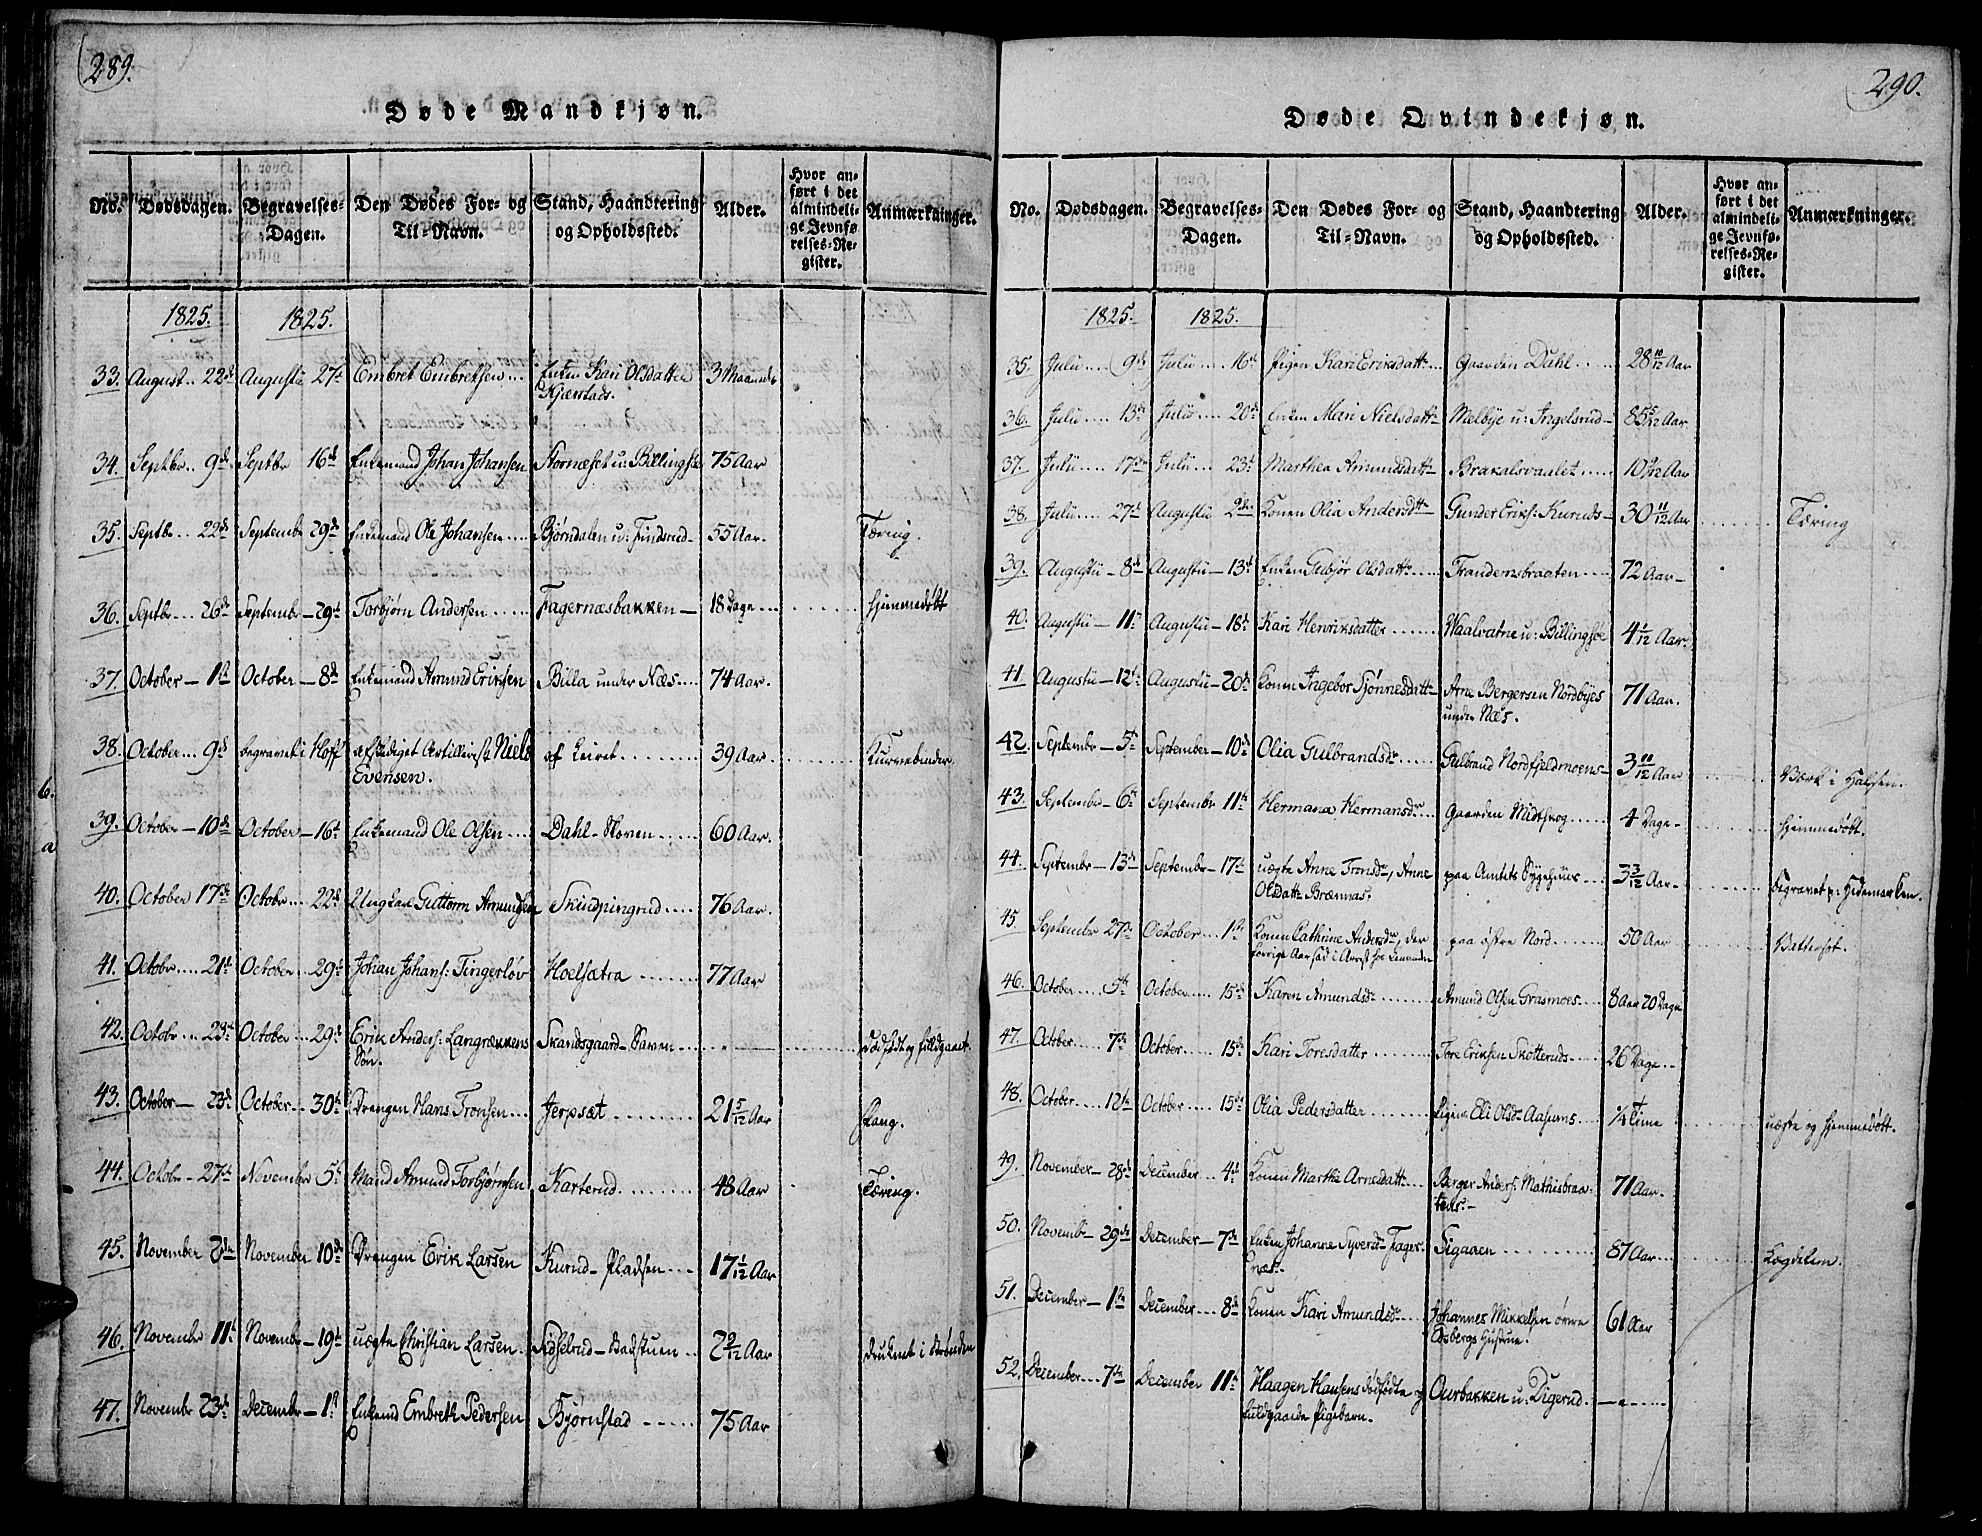 289.
Døde Mandkjøn.
No. Dødsdagen. Begravelses-Dagen. Den Dødes For- og Til-Navn. Stand, Haandtering og Opholdssted. Alder. Hvor anført i det almindelige Jevnførelses-Register. Anmærkninger.
1825. 1825.
33. August .. 22d Augusti 27d Embret Embretsen ... Enken Kari Olsdatter Kjærstads. 3 Maaneder
34. Septbr .. 9de Septbr 16d Enkemand Johan Johansen Stornæset u: Billingsøe 75 Aar
35. Septbr .. 22de Septembr 29de Enkemand Ole Johansen .... Bjørndalen u: Findsrud- 55 Aar. Tæring.
36. Septbr ... 26de Septembr - 29d Torbjørn Andersen ..... Fagernæsbakken - 18 Dage .... hjemmedøbt
37. October - 1ste October - 8d Enkemand Amund Eriksen Billa under Næs .... 74 Aar.
38. October ... 9de begravet i Hoff afskediget Artillerist Niels Evensen. af Leiret ........ 39 Aar. Kurvebinder
39. October - 10de October - 16d Enkemand Ole Olsen .... Dahl-Skoven ...... 60 Aar.
40. October 17de Octobr ... 22de Ungkar Guttorm Amundsen Skindpingrud ..... 76 Aar.
41. Octobr .... 21d October .. 29d Johan Johans: Tingerløv Hoelsætra ....... 77 Aar
42. Octobr ... 23d October ... 29de Erik Anders: Langrækkens Søn. Skandsgaard-Saven dødfødt og fuldgaaet.
43. October - 23de October .. 30d Drengen Hans Tronsen ... Jerpsæt ........ 21 5/12 Aar
44. Octobr - 27de November 5d Mand Amund Torbjørnsen Karterud ........ 48 Aar Tæring.
45. November 2den November 10de Drengen Erik Larsen Kurud-Pladsen ... 17 1/12 Aar
46. Novembr 11d Novembr - 19d uægte Christian Larsen. -Badstuen .. 2 2/12 Aar druknet i Brønden
47. Novembr 23d Decembr - 1st Embreth Pedersen Bjørnstad ..... 75 Aar
290.
Døde Qvindekjøn.
No. Dødsdagen. Begravelses-Dagen. Den Dødes For- og Til-Navn. Stand, Haandtering og Opholdssted. Alder. Hvor anført i det almindelige Jevnførelses-Register. Anmærkninger.
1825. 1825.
35. Julii .... 9de Julii .... 16d Pigen Kari Eriksdattr .... Gaarden Dahl ..... 28 10/12 Aar
36. Julii .... 13de Julii .... 20de Enken Mari Nielsdattr- Melbye u: Ingelsrud- 85 5/12 Aar
37. Julii .... 17de Julii .... 23d Marthea Amundsdattr- Brakalsvaalet ..... 10 9/12 Aar
38. Julii .... 27d Augustii 2den Konen Olia Andersdttr Gunder Eriks: Kuruds- 30 11/12 Aar Tæring
39. Augustii - 8de Augustii - 13d Enken Gubjør Olsdattr ..... Trandemsbraaten .... 72 Aar-
40. Augustii - 11te Augustii - 18d Kari Henriksdatter ........ Waalvatne u: Billingsøe 4 1/12 Aar.
41. Augustii - 12te Augustii - 20d Konen Ingebor Tjønnesdattr- Arne Bergersen Nordbyes under Næs. 71 Aar.
42. Septembr - 5d September - 10de Olia Gulbrandsdr ...... Gulbrand Nordfjeldmoens- 3 11/12 Aar Værk i Halsen.
43. Septembr - 6te Septembr 11te Hermana Hermansdr .... Gaarden Midtskog ..... 4 Dage- hjemmedøbt.
44. Septembr - 13de Septembr - 17de uægte Anne Tronsdr, Anne Olsdattr Brænnas. paa Amtets Sygehuus .... 3 3/12 Aar- begravet p: Hedemarken.
45. Septembr 27de October ... 1ste Konen Cathrine Andersdr, der forrige Aar sad i Arrest hos Lensmanden paa østre Nord ....... 50 Aar Vattersot.
46. October .... 5te October ..... 15de Karen Amundsdr ......... Amund Olsen Grasmoes .... 8 Aar 20 Dage
47. October .... 7de October ..... 15de Kari Toresdatter ........ Tore Eriksen Skotteruds ..... 26 Dage ..
48. October .... 12te October ..... 15de Olia Pedersdatter ........ Pigen Eli Olsdr Aasums .... 1/4 Time uægte og hjemmedøbt.
49. November - 28de December .. 4de Konen Marthe Arnesdatt .... Berger Anders: Mathisbraatens:- 71 Aar.
50. Novembr 29de December - 7de Enken Johanne Syversdr Fagernæs. Sigaaen ......... 87 Aar ... Lægdslem.
51. December - 1ste December ... 8de Konen Kari Amundsdr ..... Johannes Mikkelsen øvre Aasbergs Hustrue. 61 Aar
52. December ... 7de December 11te Haagen Hansens dødfødte og fuldgaaede Pigebarn. Ourbakken u: Digerud.